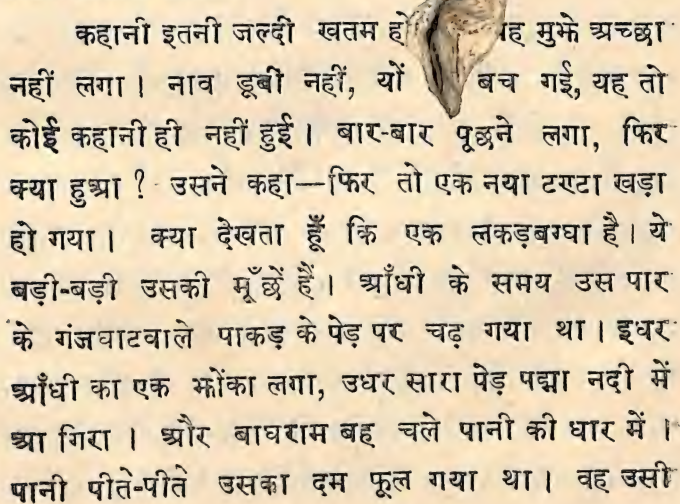 कहानी इतनी जल्दी खतम हो यह मुझे अच्छा
नहीं लगा। नाव डूबी नहीं, यों बच गई, यह तो
कोई कहानी ही नहीं हुई। बार-बार पूछने लगा, फिर
क्या हुआ? उसने कहा—फिर तो एक नया टण्टा खड़ा
हो गया। क्या देखता हूँ कि एक लकड़बग्घा है। ये
बड़ी-बड़ी उसकी मूँछें हैं। आँधी के समय उस पार
के गंजघाटवाले पाकड़ के पेड़ पर चढ़ गया था। इधर
आँधी का एक झोंका लगा, उधर सारा पेड़ पद्मा नदी में
आ गिरा। और बाघराम बह चले पानी की धार में।
पानी पीते-पीते उसका दम फूल गया था। वह उसी